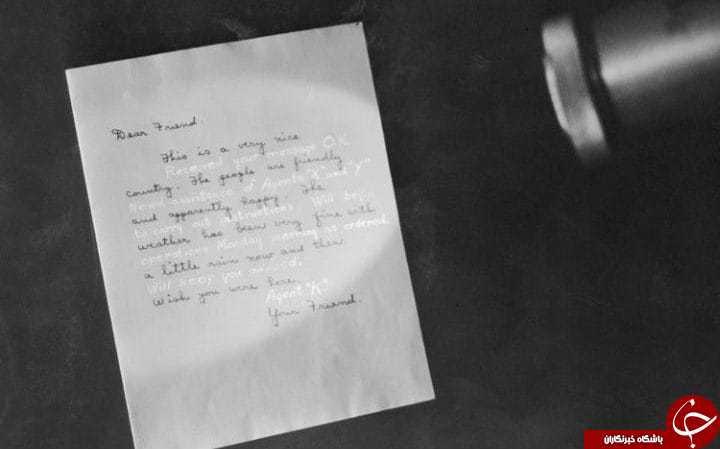 Dear Friend.
This is a very nice
Received your message OK
country. The people are friendly
of Agents "X" and "Y"
and apparently happy. The
to carry out instructions. Will begin
weather has been very fine with
Monday morning as ordered.
a little rain now and then.
Will keep you advised.
Wish you were here,
Agent
Your Friend.
باشگاه خبرنگاران